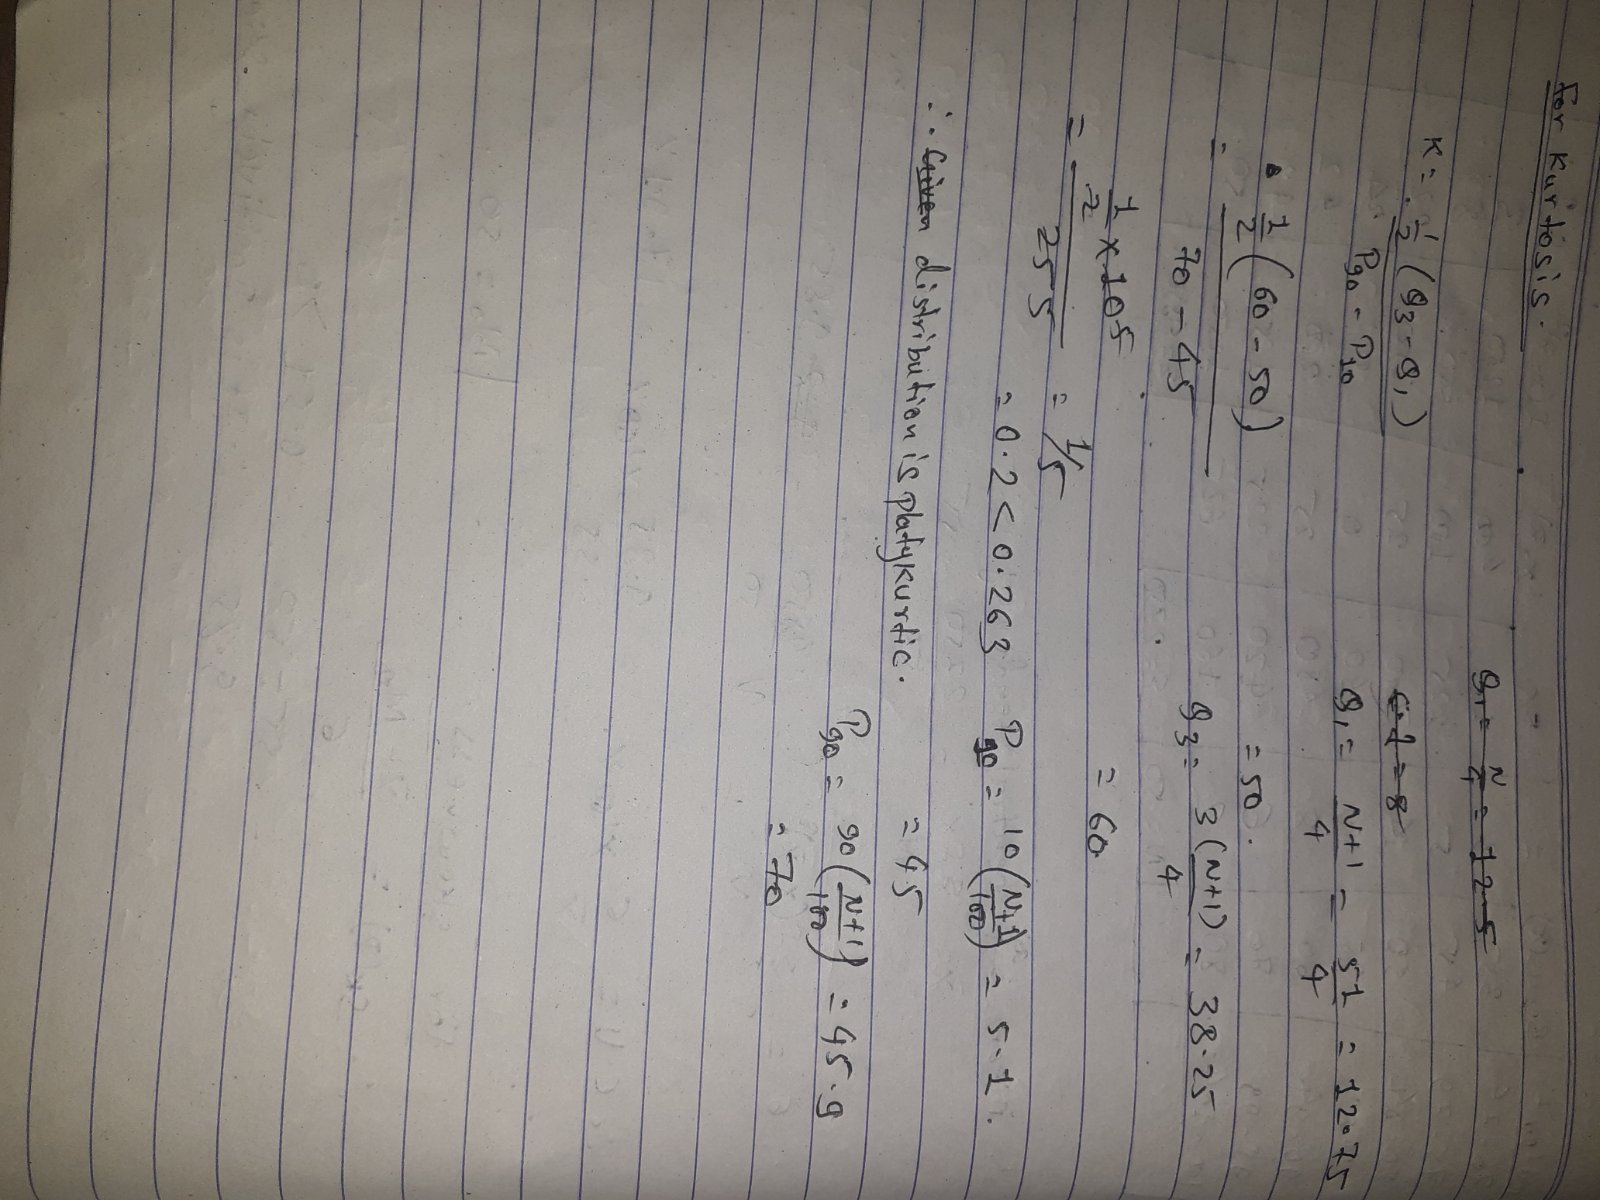 For kurtosis.
K = 1/2 (Q3 - Q1)
P90 - P10
= 1/2 (60 - 50)
70 - 45
= 1/2 × 10 5
25 5
= 1/5
= 0.2 < 0.263
∴ Given distribution is platykurtic.
Q1 = N/4 = 12.5
c.f = 8
Q1 = N+1/4 = 51/4 = 12.75
= 50.
Q3 = 3(N+1)/4 = 38.25
= 60
P10 = 10(N+1/100) = 5.1
= 45
P90 = 90(N+1/100) = 45.9
= 70